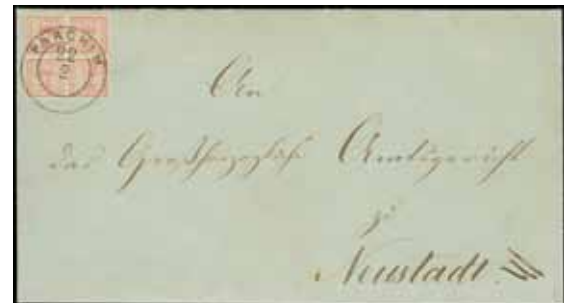 PARCHIM
22
2
An
das Großherzogliche Amtsgericht
zu
Neustadt